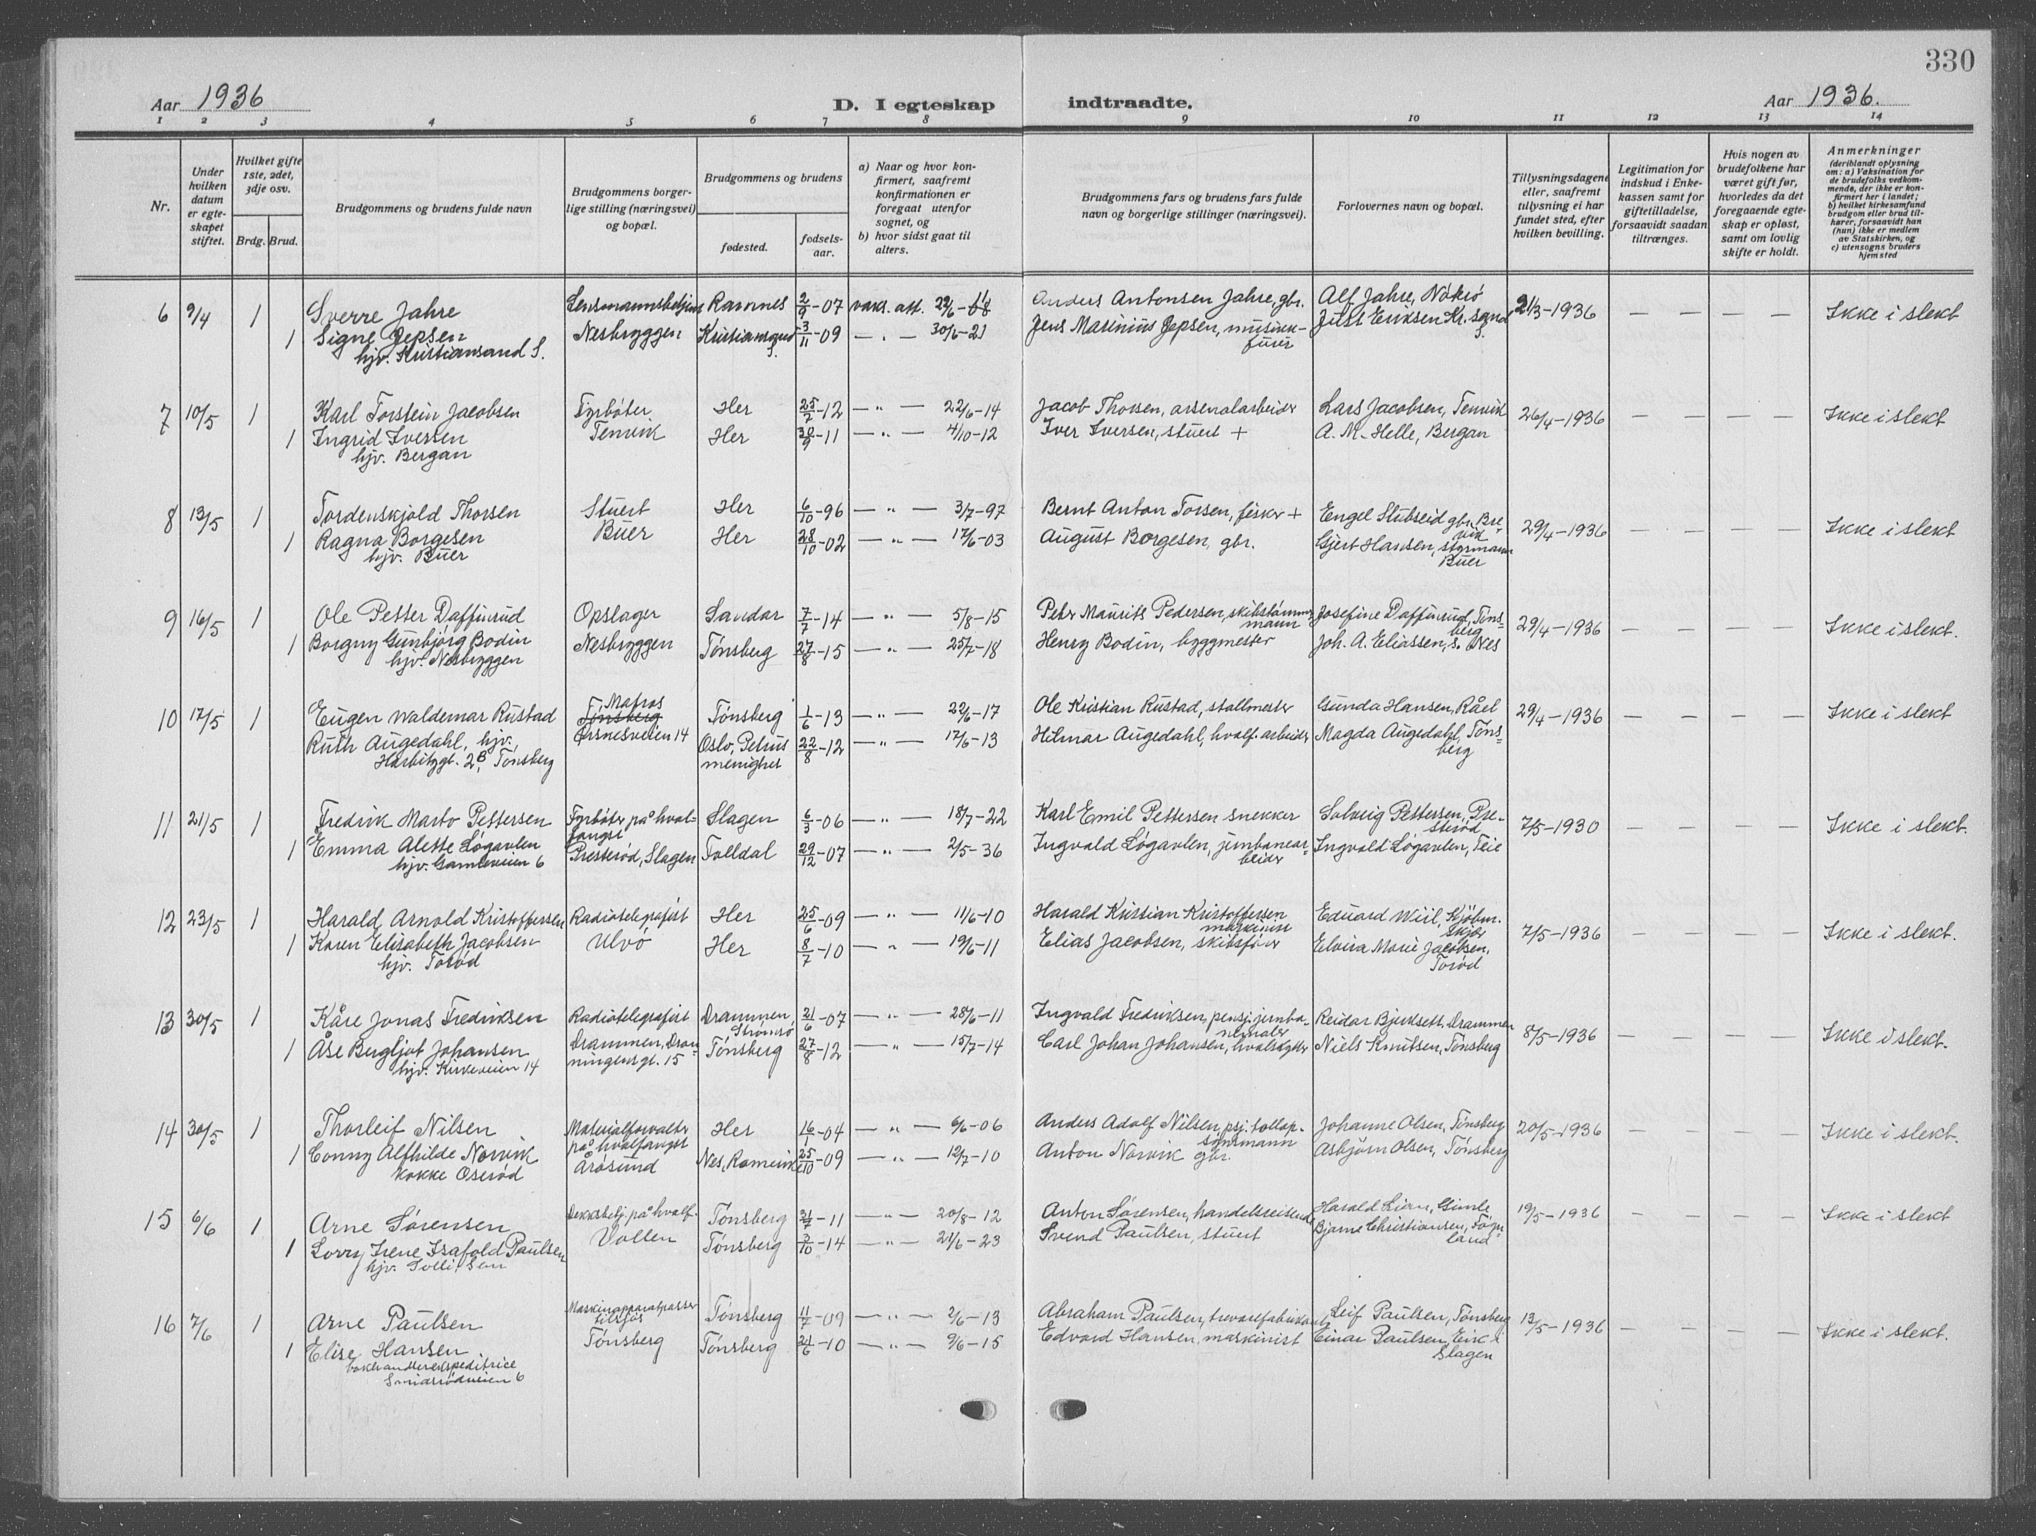 330
Aar 1936
D. I egteskap indtraadte.
Aar 1936.
1 2 3 4 5 6 7 8 9 10 11 12 13 14
Nr.
Under hvilken datum er egteskapet stiftet.
Hvilket gifte 1ste, 2det, 3dje osv.
Brdg. Brud.
Brudgommens og brudens fulde navn
Brudgommens borgerlige stilling (næringsvei) og bopæl.
Brudgommens og brudens
fødested.
fødselsaar.
a) Naar og hvor konfirmert, saafremt konfirmationen er foregaat utenfor sognet, og
b) hvor sidst gaat til alters.
Brudgommens fars og brudens fars fulde navn og borgerlige stillinger (næringsvei).
Forlovernes navn og bopæl.
Tillysningsdagene eller, saafremt tillysning ei har fundet sted, efter hvilken bevilling.
Legitimation for indskud i Enkekassen samt for giftetilladelse, forsaavidt saadan tiltrænges.
Hvis nogen av brudefolkene har været gift før, hvorledes da det foregaaende egteskap er opløst, samt om lovlig skifte er holdt.
Anmerkninger
(deriblandt oplysning om: a) Vaksination for de brudefolks vedkommende, der ikke er konfirmert her i landet; b) hvilket kirkesamfund brudgom eller brud tilhører, forsaavidt han (hun) ikke er medlem av Statskirken, og c) utensogns bruders hjemsted
6 9/4 1 Sverre Jahre Lensmannsbetjent Ramnes 2/9-07 vaks. att. 22/6-08 Anders Antonsen Jahre, gbr. Alf Jahre, Nøkrø 21/3-1936 — — — Ikke i slekt
1 Signe Jepsen Nesbryggen Kristiansand S. 3/11-09 — „ — 30/6-21 Jens Marinius Jepsen, musikkfurer Just Eriksen Kr.sand S.
hjv. Kristiansand S.
7 10/5 1 Karl Torstein Jacobsen Fyrbøter Her 25/7-12 — „ — 22/6-14 Jacob Thorsen, arsenalarbeider Lars Jacobsen, Tenvik 26/4-1936 — — — Ikke i slekt
1 Ingrid Iversen Tenvik Her 30/9-11 — „ — 4/10-12 Iver Iversen, stuert + A. M. Helle, Bergan
hjv. Bergan
8 13/5 1 Tordenskjold Thorsen Stuert Her 6/10-96 — „ — 3/7-97 Bernt Anton Torsen, fisker + Engel Stubseid gbr. Brevik 29/4-1936 — — — Ikke i slekt
1 Ragna Borgesen Buer Her 28/10-02 — „ — 17/6-03 August Borgesen, gbr. Gjert Hansen, styrmann Buer
hjv. Buer
9 16/5 1 Ole Petter Daffinrud Opslager Sandar 7/7-14 — „ — 5/8-15 Peter Maurits Pedersen, skibstømmermann Josefine Daffinrud, Tønsberg 29/4-1936 — — — Ikke i slekt.
1 Borgny Gunbjørg Bodin Nesbryggen Tønsberg 27/8-15 — „ — 25/7-18 Henry Bodin, byggmester Joh. A. Eliassen, s. Nes
hjv. Nesbryggen
10 17/5 1 Eugen Waldemar Rustad Matros Tønsberg Ørsnesveien 14 Tønsberg 1/6-13 — „ — 22/6-17 Ole Kristian Rustad, stallmester Gunda Hansen, Råel 29/4-1936 — — — Ikke i slekt
Ruth Augedahl, hjv. Oslo, Petrus menighet 22/8-12 — „ — 17/6-13 Hilmar Augedahl, hvalf.arbeider Magda Augedahl, Tønsberg
Harbitzgt. 2B, Tønsberg
11 21/5 1 Fredrik Marto Pettersen Fyrbøter på hvalfangst Slagen 6/3-06 — „ — 18/7-22 Karl Emil Pettersen snekker Solveig Pettersen, Presterød 7/5-1930 — — — Ikke i slekt.
1 Emma Alette Løgavlen Presterød, Slagen Folldal 29/12-07 — „ — 2/5-36 Ingvald Løgavlen, jernbanearbeider Ingvald Løgavlen, Teie
hjv. Gamleveien 6
12 23/5 1 Harald Arnold Kristoffersen Radiotelegrafist Her 25/6-09 — „ — 11/6-10 Harald Kristian Kristoffersen maskinist Eduard Wiil, Kjøbm. Skjær 7/5-1936 — — — Ikke i slekt.
1 Karen Elisabeth Jacobsen Ulvø Her 8/7-10 — „ — 19/6-11 Elias Jacobsen, skibsfører Elvira Marie Jacobsen, Torød
hjv. Torød
13 30/5 1 Kåre Jonas Fredriksen Radiotelegrafist Drammen, Strømsø 21/6-07 — „ — 28/6-11 Ingvald Fredriksen, pensj. jernba- Reidar Bjerksett, Drammen 8/5-1936 — — — Ikke i slekt.
1 Åse Bergljot Johansen Drammen, Dronningensgt. 15 Tønsberg 27/8-12 — „ — 15/7-14 Carl Johan Johansen, hvalskytter Niels Knutsen, Tønsberg
hjv. Kirkeveien 14
14 30/5 1 Thorleif Nilsen Materialforvalter på hvalfangst Her 16/1-04 — „ — 6/6-06 Anders Adolf Nilsen, psj. tollopsynsmann Johanne Olsen, Tønsberg 20/5-1936 — — — Ikke i slekt.
1 Conny Alfhilde Norvik Årøsund Nes, Romerike 25/10-09 — „ — 12/7-10 Anton Norvik gbr. Asbjørn Olsen, Tønsberg
kokke Oserød
15 6/6 1 Arne Sørensen Dekksbetj. på hvalf. Tønsberg 21/7-11 — „ — 20/8-12 Anton Sørensen, handelsreisende Harald Lian, Gimle 19/5-1936 — — — Ikke i slekt
1 Lorry Irene Isafold Paulsen Vollen Tønsberg 3/10-14 — „ — 21/6-23 Svend Paulsen, stuert Bjarne Christiansen, Fognland
hjv. Solli, Sem
16 7/6 1 Arne Paulsen Maskinapparatpasser tilsjøs Tønsberg 11/7-09 — „ — 2/6-13 Abraham Paulsen, trevarefabrikant Leif Paulsen, Tønsberg 13/5-1936 — — — Ikke i slekt.
1 Elise Hansen Tønsberg Tønsberg 21/6-10 — „ — 9/6-15 Edvard Hansen, maskinist Einar Paulsen, Eik i Slagen
bokhandlerekspeditrice
Smidsrødveien 6